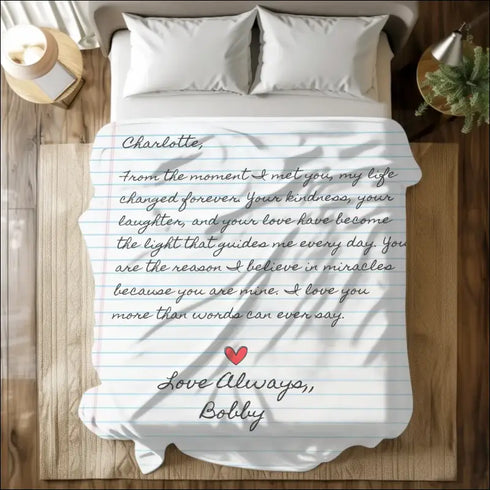 Charlotte,
From the moment I met you, my life
changed forever. Your kindness, your
laughter, and your love have become
the light that guides me every day. You
are the reason I believe in miracles
because you are mine. I love you
more than words can ever say.
Love Always,,
Bobby